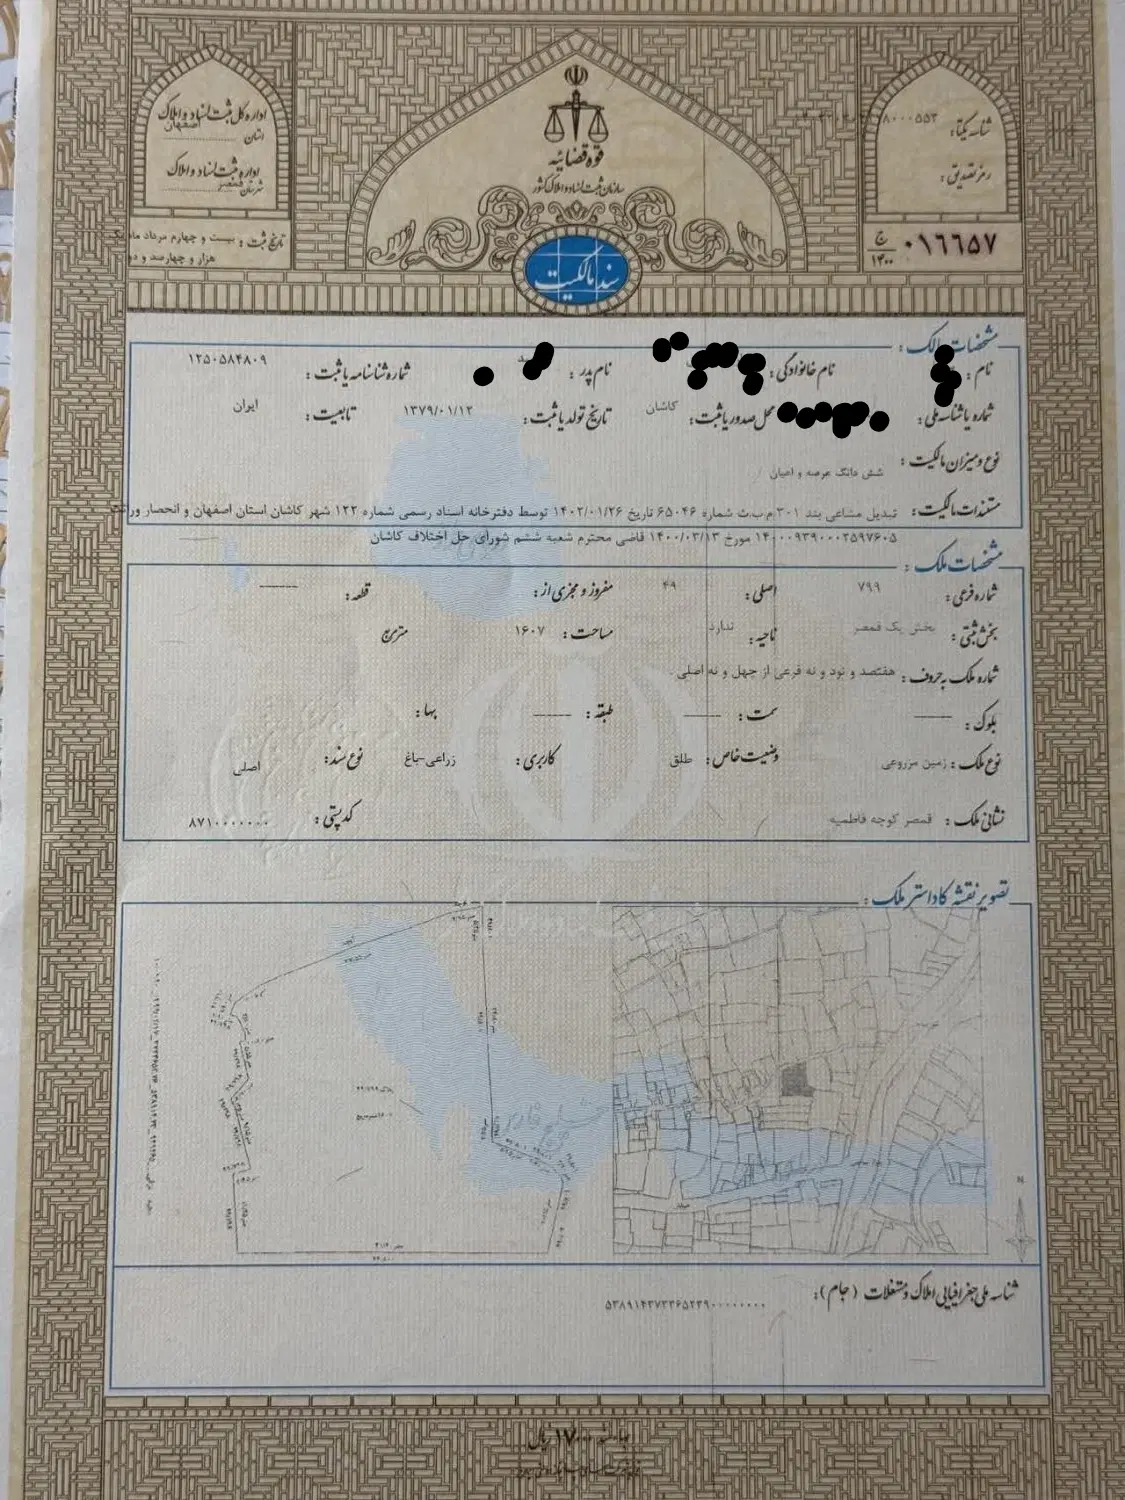 اداره کل ثبت اسناد و املاک
استان اصفهان
اداره ثبت اسناد و املاک
شهرستان قمصر
تاریخ ثبت : بیست و چهارم مرداد ماه یک
هزار و چهارصد و دو
قوه قضائیه
سازمان ثبت اسناد و املاک کشور
سند مالکیت
شناسه یکتا :
رمز تصدیق :
ج
۱۴۰۰
۰۱۶۶۵۷
مشخصات مالک :
نام :
نام خانوادگی :
نام پدر :
شماره شناسنامه یا ثبت : ۱۲۵۰۵۸۴۸۰۹
شماره یا شناسه ملی :
محل صدور یا ثبت : کاشان
تاریخ تولد یا ثبت : ۱۳۷۹/۰۱/۱۲
تابعیت : ایران
نوع و میزان مالکیت : شش دانگ عرصه و اعیان
مستندات مالکیت : تبدیل مشاعی بند ۳۰۱.م.ب.ث شماره ۶۵۰۴۶ تاریخ ۱۴۰۲/۰۱/۲۶ توسط دفترخانه اسناد رسمی شماره ۱۲۲ شهر کاشان استان اصفهان و انحصار وراثت
۱۴۰۰۰۹۳۹۰۰۰۲۵۹۷۶۰۵ مورخ ۱۴۰۰/۰۳/۱۳ قاضی محترم شعبه ششم شورای حل اختلاف کاشان
مشخصات ملک :
شماره فرعی : ۷۹۹
اصلی : ۴۹
مفروز و مجزی از :
قطعه :
بخش ثبتی : بخش یک قمصر
ناحیه : ندارد
مساحت : ۱۶۰۷ مترمربع
شماره ملک به حروف : هفتصد و نود و نه فرعی از چهل و نه اصلی
بلوک :
سمت :
طبقه :
بها :
نوع ملک : زمین مزروعی
وضعیت خاص : طلق
کاربری : زراعی-باغ
نوع سند : اصلی
نشانی ملک : قمصر کوچه فاطمیه
کد پستی : ۸۷۱۰۰۰۰۰۰۰
تصویر نقشه کاداستر ملک :
N
شناسه ملی جغرافیایی املاک و مستغلات (جام) :
۵۳۸۹۱۴۳۷۳۳۶۵۲۳۹۰۰۰۰۰۰۰۰